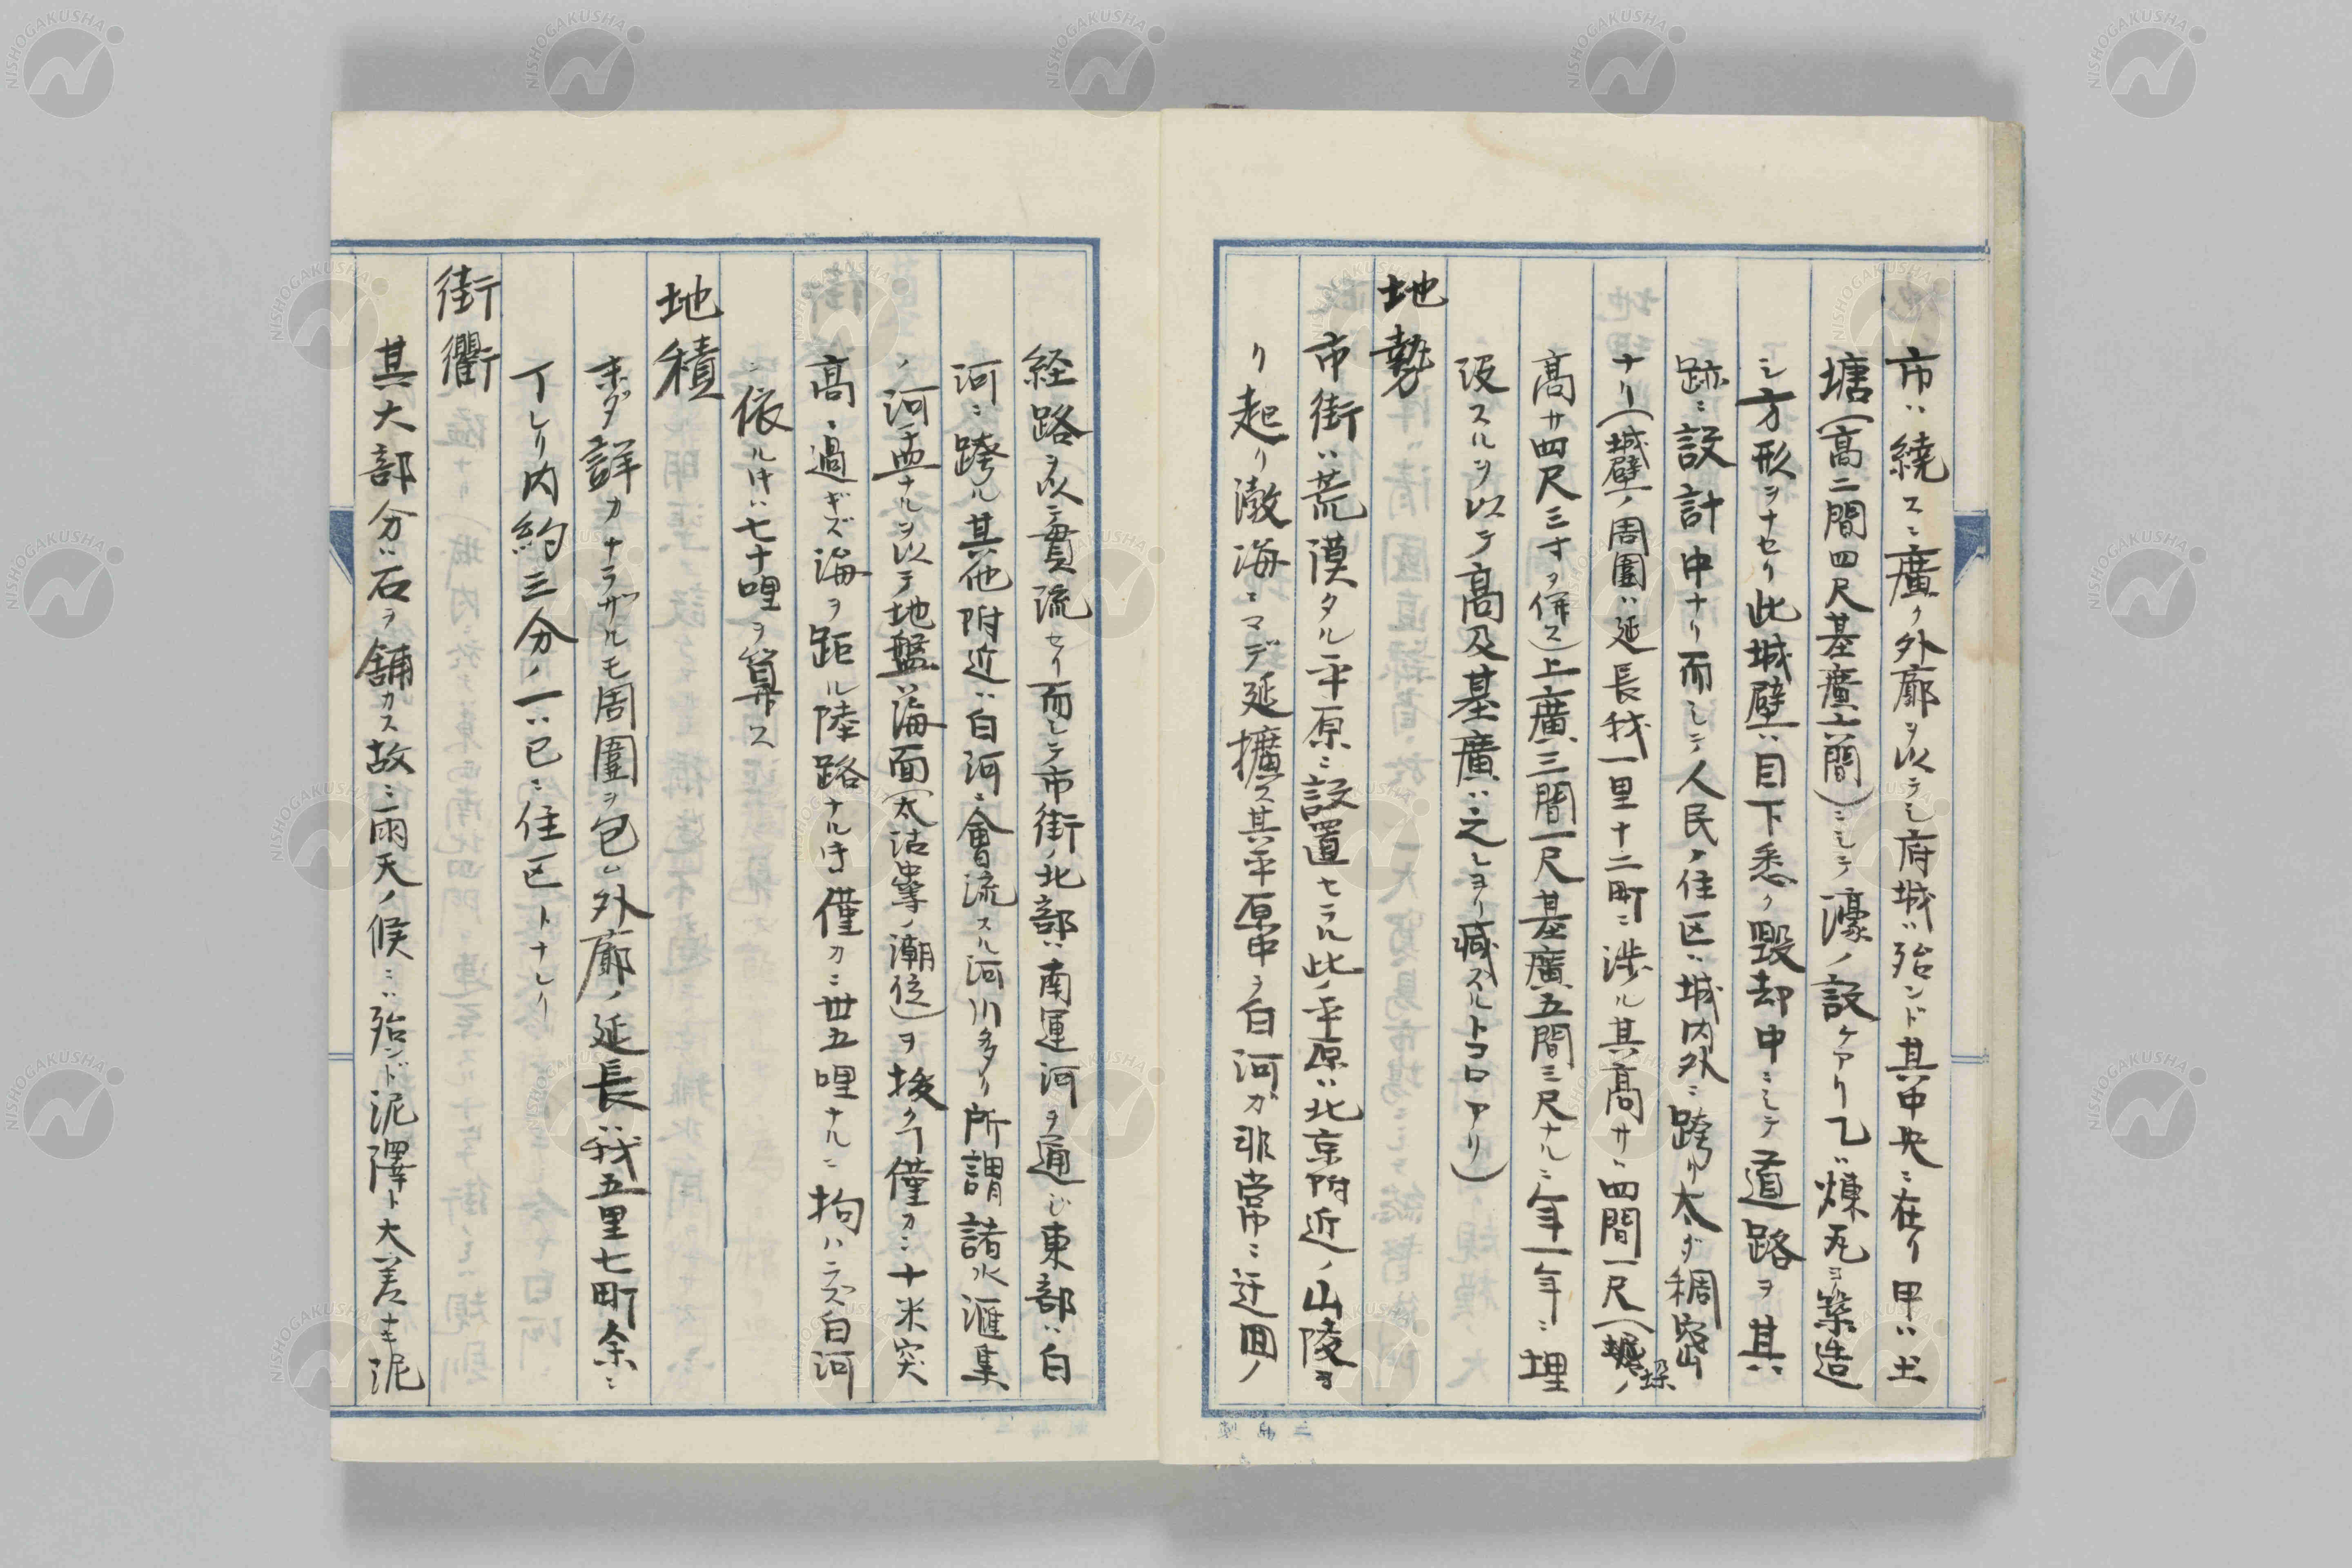 市ハ繞スニ廣ク外廓ヲ以テシ府城ハ殆ンド其中央ニ在リ甲ハ土
塘(高二間四尺基廣六間)ニシテ濠ノ設ケアリ乙ハ煉瓦ヨリ築造
シ方形ヲナセリ此城壁ハ目下悉ク毀却中ニシテ道路ヲ其
跡ニ設計中ナリ而シテ人民ノ住区ハ城内外ニ跨リ太ダ稠密
ナリ(城壁ノ周圍ハ延長我一里十二町ニ渉ル其高サハ四間一尺(堞ノ
高サ四尺三寸ヲ併ス)上廣三間一尺基廣五間三尺ナルニ年一年ニ埋
没スルヲ以テ高及基廣ハ之レヨリ減ズルトコロアリ)
地勢
市街ハ荒漠タル平原ニ設置セラル此ノ平原ハ北京附近ノ山陵ヨ
リ起リ渤海ニマデ延擴ス其平原中ヲ白河ガ非常ニ迂囬ノ
経路ヲ以テ貫流セリ而シテ市街ノ北部ハ南運河ヲ通ジ東部ハ白
河ニ跨ル其他附近ハ白河ニ會流スル河川多リ所謂諸水滙集
ノ河盂ナルヲ以テ地盤ハ海面(太沽ノ潮位)ヲ抜ク僅カニ十米突
高ニ過ギズ海ヲ距ル陸路ナルキ僅カニ丗五哩ナルニ拘ハラズ白河
ニ依ルキハ七十哩ヲ算ス
地積
未ダ詳カナラザルモ周圍ヲ包ム外廓ノ延長ハ我五里七町余ニ
了レリ内約三分ノ一ハ已ニ住区トナレリ
街衢
其大部分ハ石ヲ舗カス故ニ雨天ノ候ニハ殆ンド泥澤ト大差ナキ泥
NISHOGAKUSHA